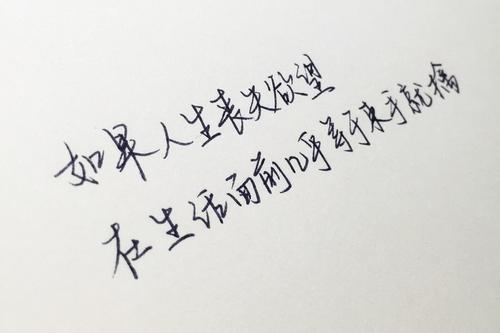 如果人生丧失欲望
在生活面前几乎等于束手就擒